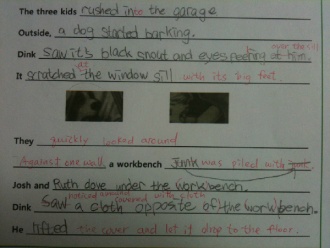 The three kids rushed into the garage
Outside, a dog started barking.
over the sill
Dink Saw it's black snout and eyes peeking at him.
at
It scratched the window sill with its big feet.
They quickly looked around
Against one wall a workbench Junk was piled with
Josh and Ruth dove under the workbench.
noticed around covered with cloth
Dink Saw a cloth opposite of the workbench.
He lifted the cover and let it drop to the floor.